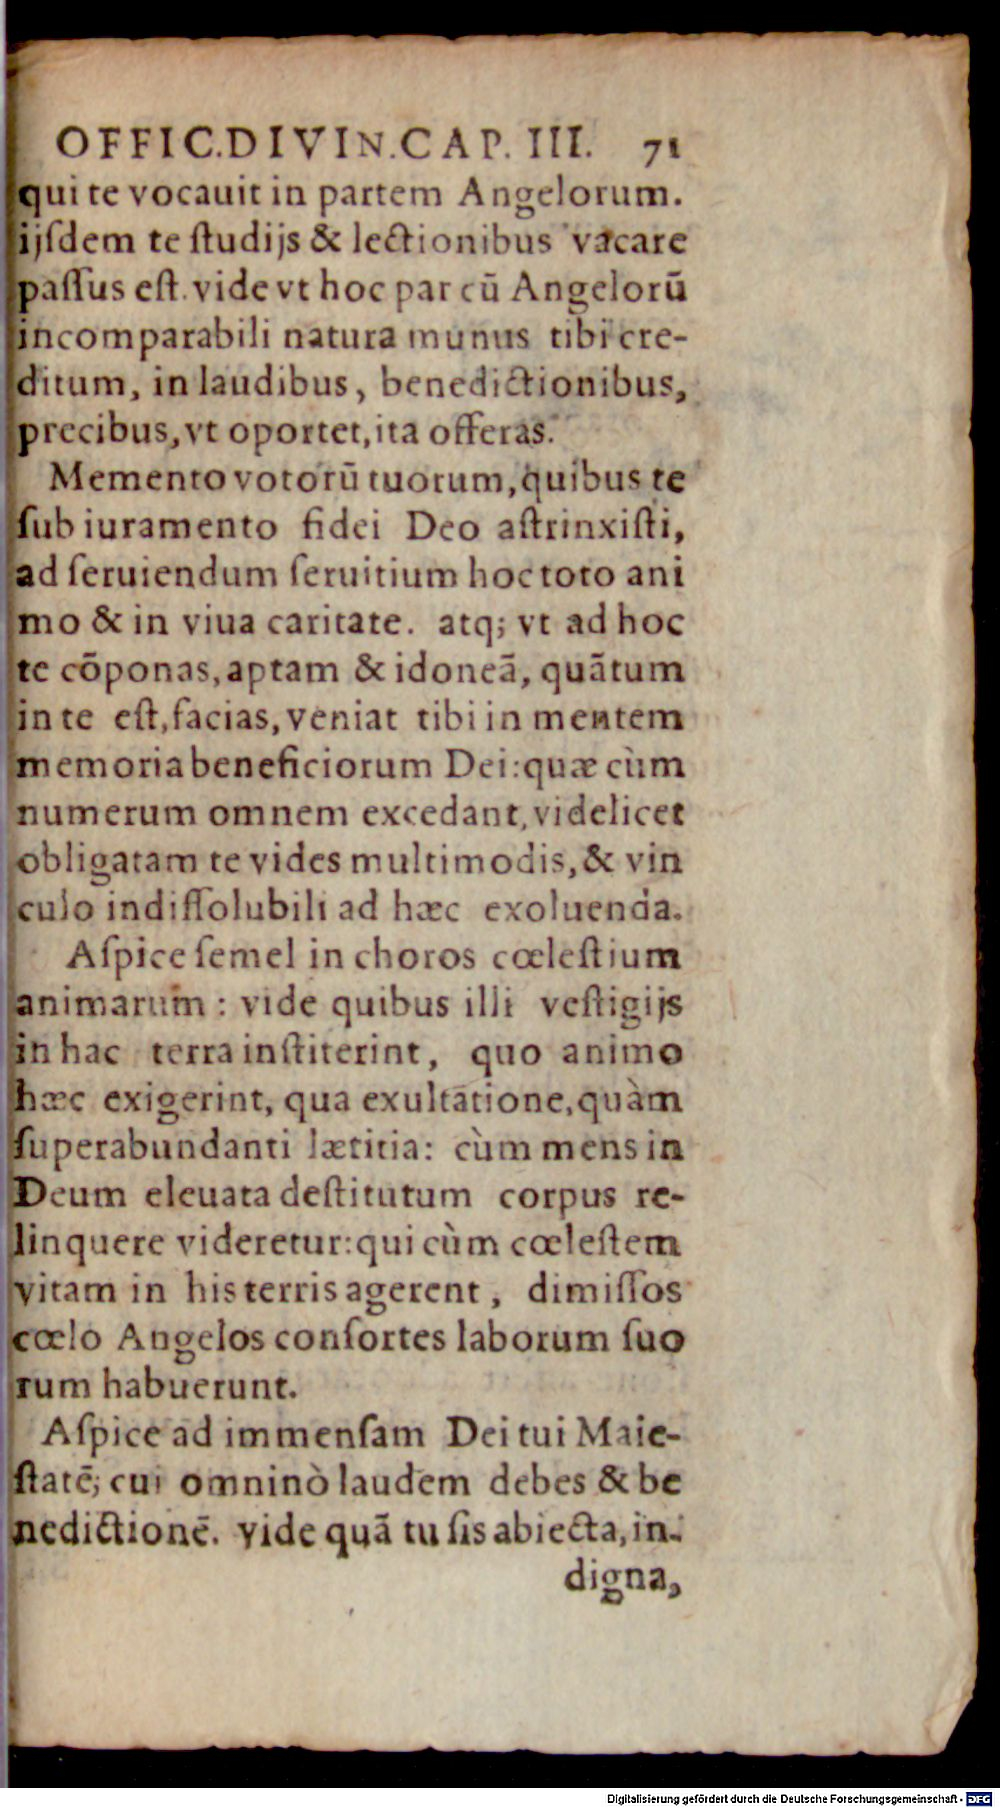 OFFIC.DIVIN.CAP. III. 71
qui te vocauit in partem Angelorum.
ijſdem te ſtudijs & lectionibus vacare
paſſus eſt. vide vt hoc par cū Angelorū
incomparabili natura munus tibi cre-
ditum, in laudibus, benedictionibus,
precibus, vt oportet, ita offeras.
Memento votorū tuorum, quibus te
ſub iuramento fidei Deo aſtrinxiſti,
ad ſeruiendum ſeruitium hoc toto ani
mo & in viua caritate. atq; vt ad hoc
te cōponas, aptam & idoneā, quātum
in te eſt, facias, veniat tibi in mentem
memoria beneficiorum Dei: quæ cùm
numerum omnem excedant, videlicet
obligatam te vides multimodis, & vin
culo indiſſolubili ad hæc exoluenda.
Aſpice ſemel in choros cœleſtium
animarum : vide quibus illi veſtigijs
in hac terra inſtiterint, quo animo
hæc exigerint, qua exultatione, quàm
ſuperabundanti lætitia: cùm mens in
Deum eleuata deſtitutum corpus re-
linquere videretur: qui cùm cœleſtem
vitam in his terris agerent, dimiſſos
cœlo Angelos conſortes laborum ſuo
rum habuerunt.
Aſpice ad immenſam Dei tui Maie-
ſtatē; cui omninò laudem debes & be
nedictionē. vide quā tu ſis abiecta, in-
digna,
Digitalisierung gefördert durch die Deutsche Forschungsgemeinschaft - DFG